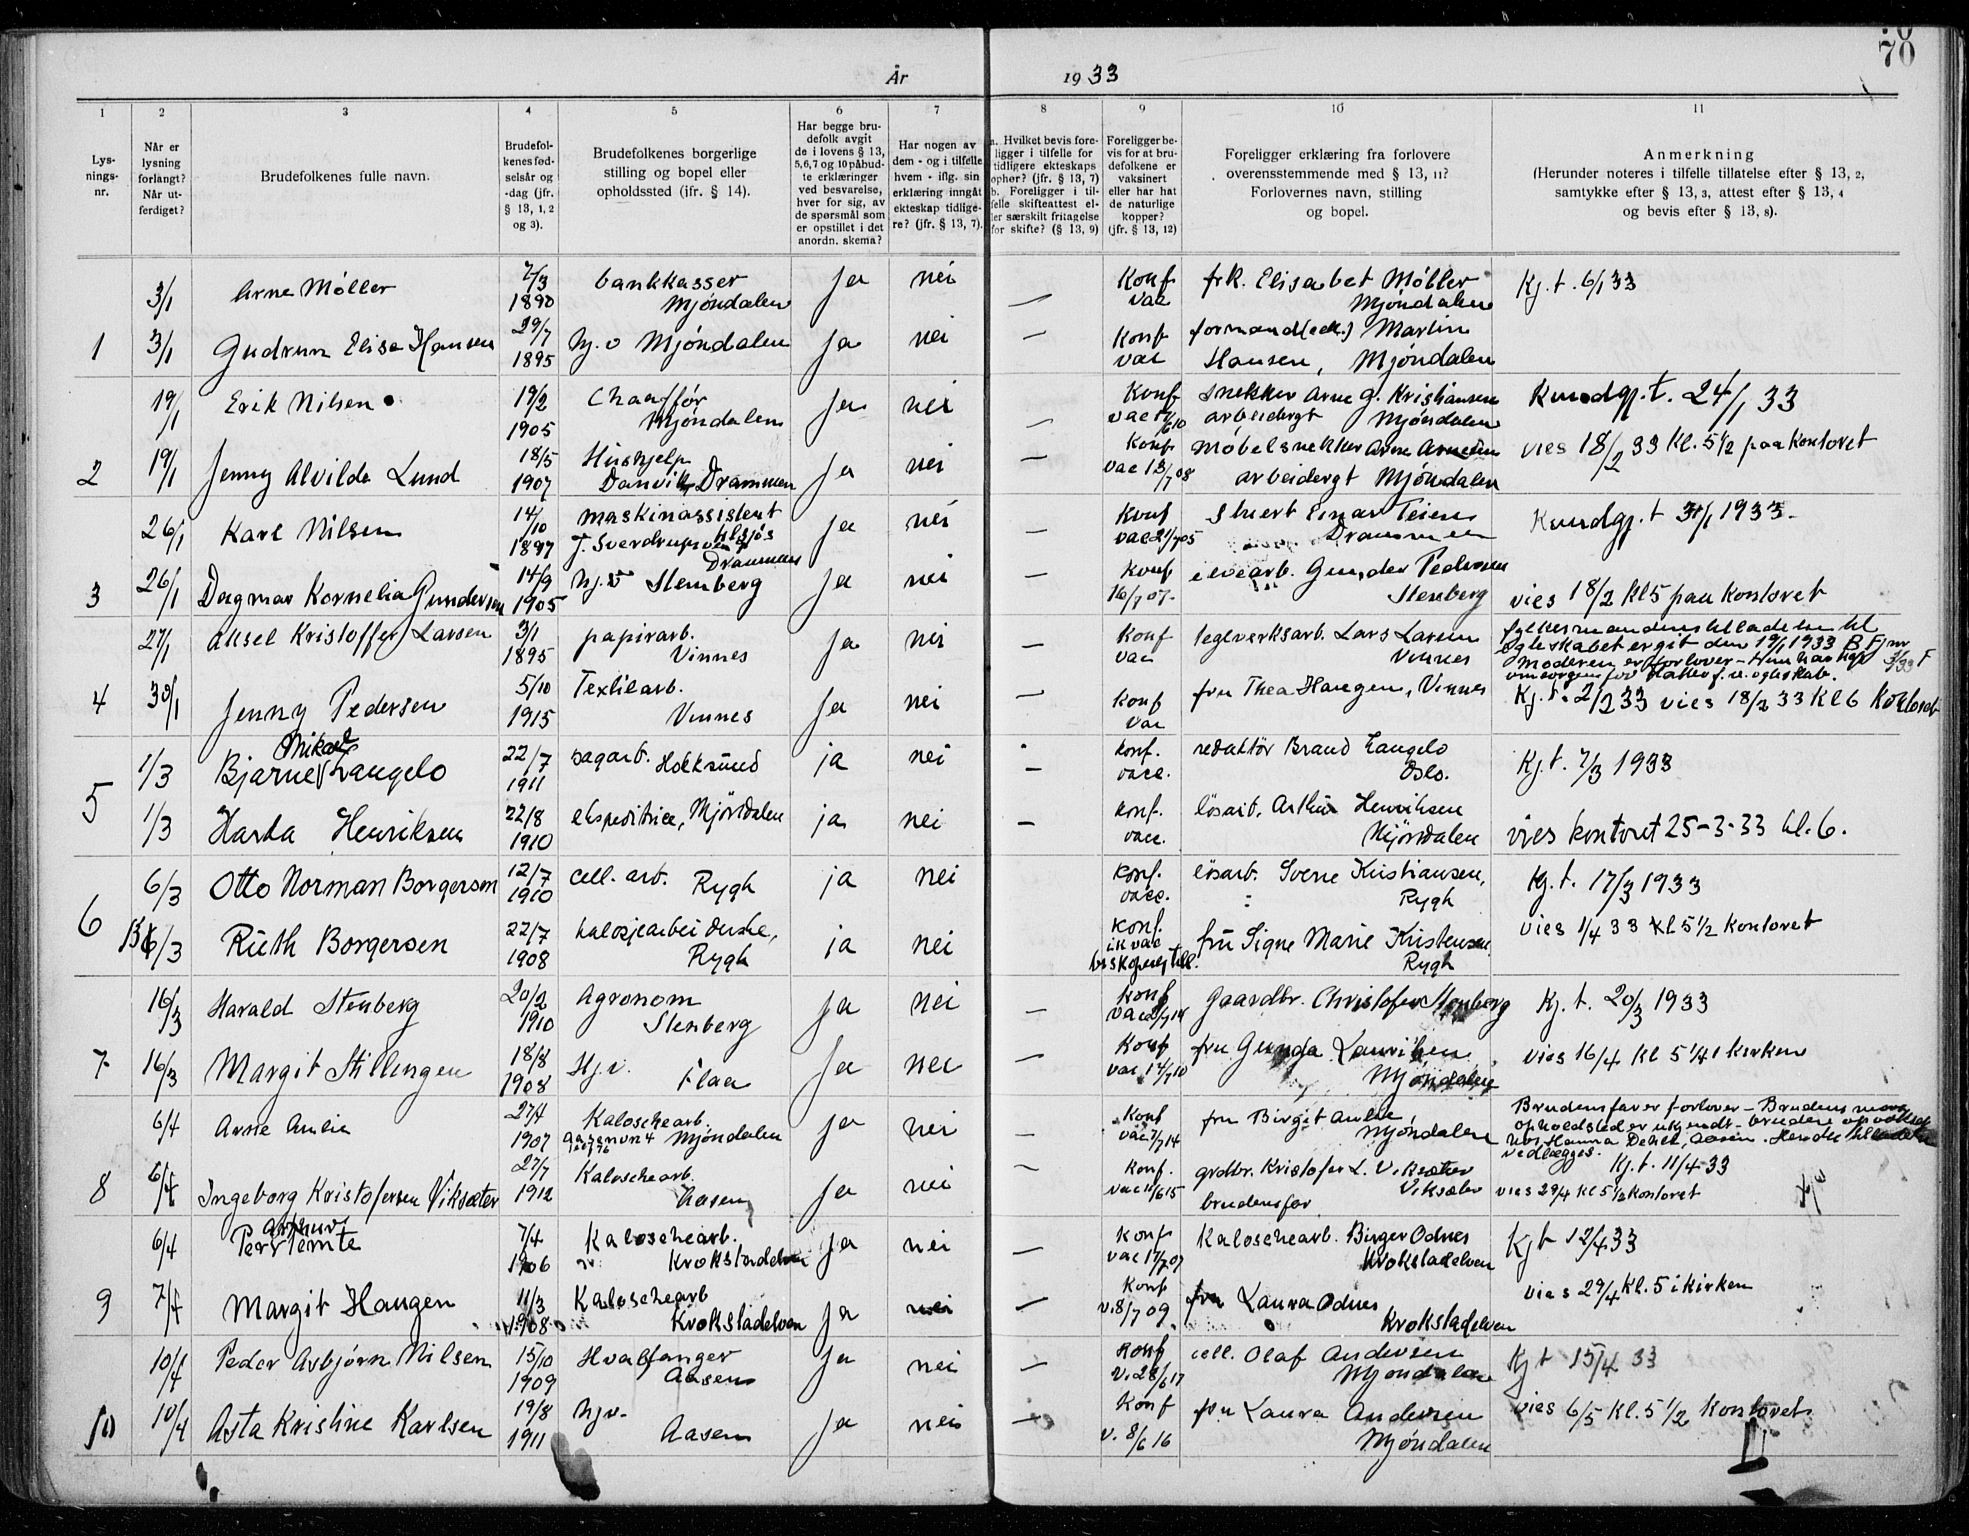 70
År 1933
1 2 3 4 5 6 7 8 9 10 11
Lysningsnr.
Når er lysning forlangt? Når utferdiget?
Brudefolkenes fulle navn.
Brudefolkenes fødselsår og -dag (jfr. § 13, 1, 2 og 3).
Brudefolkenes borgerlige stilling og bopel eller opholdssted (jfr. § 14).
Har begge brudefolk avgit de i lovens § 13, 5, 6, 7 og 10 påbudte erklæringer ved besvarelse, hver for sig, av de spørsmål som er opstillet i det anordn. skema?
Har nogen av dem - og i tilfelle hvem - iflg. sin erklæring inngått ekteskap tidligere? (jfr. § 13, 7).
a. Hvilket bevis foreligger i tilfelle for tidligere ekteskaps ophør? (jfr. § 13, 7)
b. Foreligger i tilfelle skifteattest eller særskilt fritagelse for skifte? (§ 13, 9)
Foreligger bevis for at brudefolkene er vaksinert eller har hat de naturlige kopper? (jfr. § 13, 12)
Foreligger erklæring fra forlovere overensstemmende med § 13, 11? Forlovernes navn, stilling og bopel.
Anmerkning
(Herunder noteres i tilfelle tillatelse efter § 13, 2, samtykke efter § 13, 3, attest efter § 13, 4 og bevis efter § 13, 8).
3/1 Arne Møller 7/3 1890 bankkasser Mjøndalen Ja nei — Konf vac frk. Elisabet Møller Mjøndalen Kj. t. 6/1 33
1 3/1 Gudrun Elise Hansen 29/7 1895 hj. v Mjøndalen Ja nei — Konf vac formand (cell.) Martin Hansen, Mjøndalen
19/1 Erik Nilsen 19/2 1905 Chauffør Mjøndalen Ja nei — Konf vac snekker Arne G. Kristiansen arbeidergt Mjøndalen Kundgj. t. 24/1 33
2 19/1 Jenny Alvilde Lund 18/5 1907 Hushjelp Danvik, Drammen Ja nei — Konf vac 13/7 08 Møbelsnekker Arne arbeidergt Mjøndalen vies 18/2 33 Kl. 5 1/2 paa Kontoret
26/1 Karl Nilsen 14/10 1897 maskinassistent J. Sverdrupsvei Drammen Ja nei — Konf vac 21/7 05 Einar Teien Drammen Kundgj. t 31/1 1933
3 26/1 Dagmar Kornelia Gundersen 14/9 1905 hj. v Stenberg Ja nei — Konf 16/7 07 Gunder Pedersen Stenberg vies 18/2 Kl 5 paa Kontoret
27/1 Aksel Kristoffer Larsen 3/1 1895 papirarb. Vinnes Ja nei — Konf vac teglverksarb. Lars Larsen Vinnes
fylkesmandens tilladelse til egteskabet er git den 19/1 1933
Moderen er forlover – Hun har hat omsorgen for datter f. u. egteskab.
4 30/1 Jenny Pedersen 5/10 1915 Textilarb. Vinnes Ja nei — Konf vac fru Thea Haugen, Vinnes Kj. t. 2/2 33 vies 18/2 33 Kl 6 Kontoret
1/3 Bjarne Mikael Langelo 22/7 1911 sagarb. Hokksund ja nei — konf. vacc. redaktør Brand Langelo Oslo. Kj. t. 7/3 1933
5 1/3 Harda Henriksen 22/8 1910 ekspeditrice, Mjøndalen ja nei — konf. vacc. løsarb. Arthur Henriksen Mjøndalen vies kontoret 25-3-33 kl. 6.
6/3 Otto Norman Borgersen 12/7 1910 cell. arb. Rygh ja nei konf. vacc. løsarb. Sverre Kristiansen, Rygh Kj. t. 17/3 1933
6 6/3 Ruth Borgersen 22/7 1908 kalosjearbeiderske, Rygh ja nei konf. ik vac fru Signe Marie Kristensen, Rygh vies 1/4 33 Kl 5 1/2 Kontoret
16/3 Harald Stenberg 20/2 1910 Agronom Stenberg Ja nei — Konf vac Gaardbr. Christofer Stenberg Kj. t. 20/3 1933
7 16/3 Margit Stillingen 18/8 1908 Hj. v. Flaa Ja nei — Konf vac 14/7 10 fru Gunda Lauritsen Mjøndalen vies 16/4 Kl 5 1/4 i Kirken
6/4 Arne Amlie 27/4 1907 Kaloschearb. Mjøndalen Ja nei — Konf vac 7/7 14 fru Birgit Amlie, Mjøndalen
Brudens far er forlover – Brudens mors opholdsted er ukjendt – bruden opvokset hos Hanna Aasen – Hendes tilladelse vedlægges.
Kj. t. 11/4 33
8 6/4 Ingeborg Kristofersen Viksæter 27/7 1912 Kaloschearb. Aasen Ja nei — Konf. vac 11/6 15 grdbr. Kristofer L. Viksæter Viksæter brudens far vies 29/4 Kl 5 1/2 Kontoret
6/4 Per Temte 7/4 1906 Kaloschearb. Krokstadelven Ja nei — Konf vac 17/7 07 Kaloschearb. Birger Odnes Krokstadelven Kj t 12/4 33
9 7/4 Margit Haugen 11/3 1908 Kaloschearb Krokstadelven Ja nei — Konf v. 8/7 09 fru Laura Odnes Krokstadelven vies 29/4 Kl. 5 i Kirken
10/4 Peder Asbjørn Nilsen 15/10 1909 Hvalfanger Aasen Ja nei — Konf v. 28/6 17 cell. Olaf Andersen Mjøndalen Kj t 15/4 33
10 10/4 Asta Kristine Karlsen 19/8 1911 hj v. Aasen Ja nei — Konf v. 8/6 16 fru Laura Andersen Mjøndalen vies 6/5 Kl. 5 1/2 Kontoret